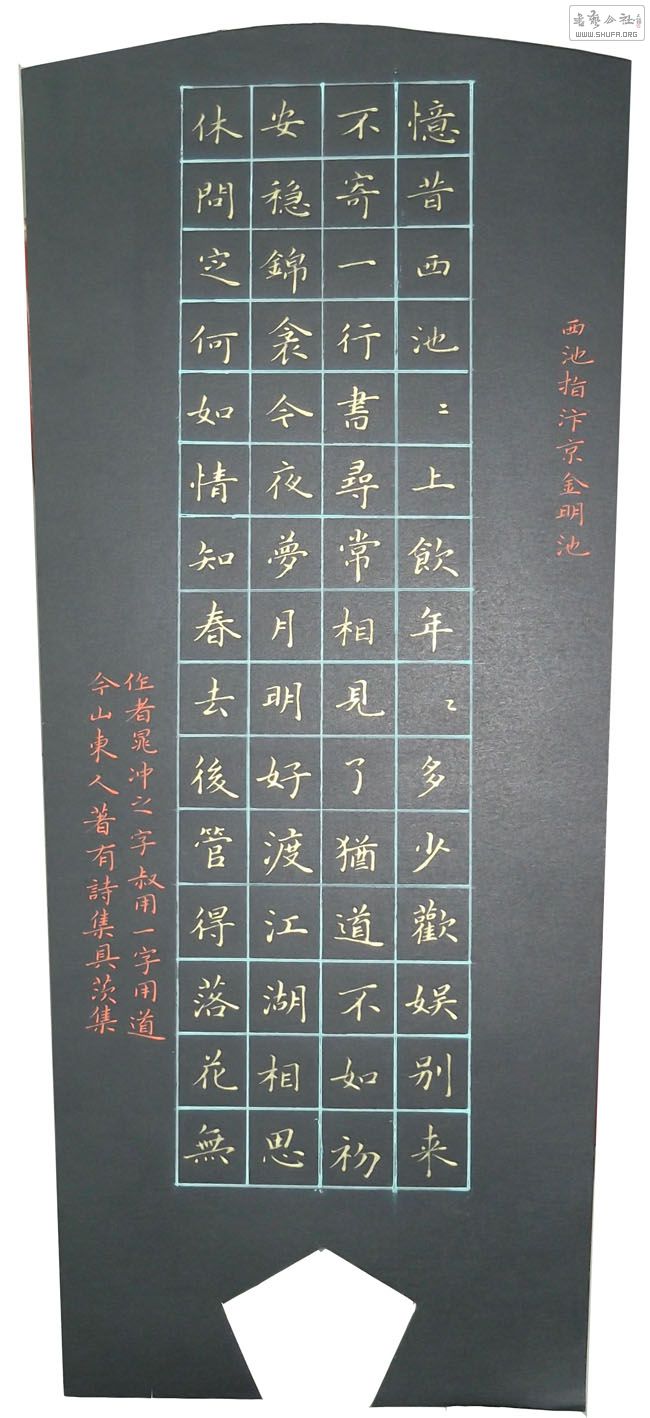 書藝公社
WWW.SHUFA.ORG
西池指汴京金明池
憶昔西池〻上飲年〻多少歡娱别来
不寄一行書尋常相見了猶道不如初
安穩錦衾今夜夢月明好渡江湖相思
休問定何如情知春去後管得落花無
作者晁冲之字叔用一字用道
今山東人著有詩集具茨集